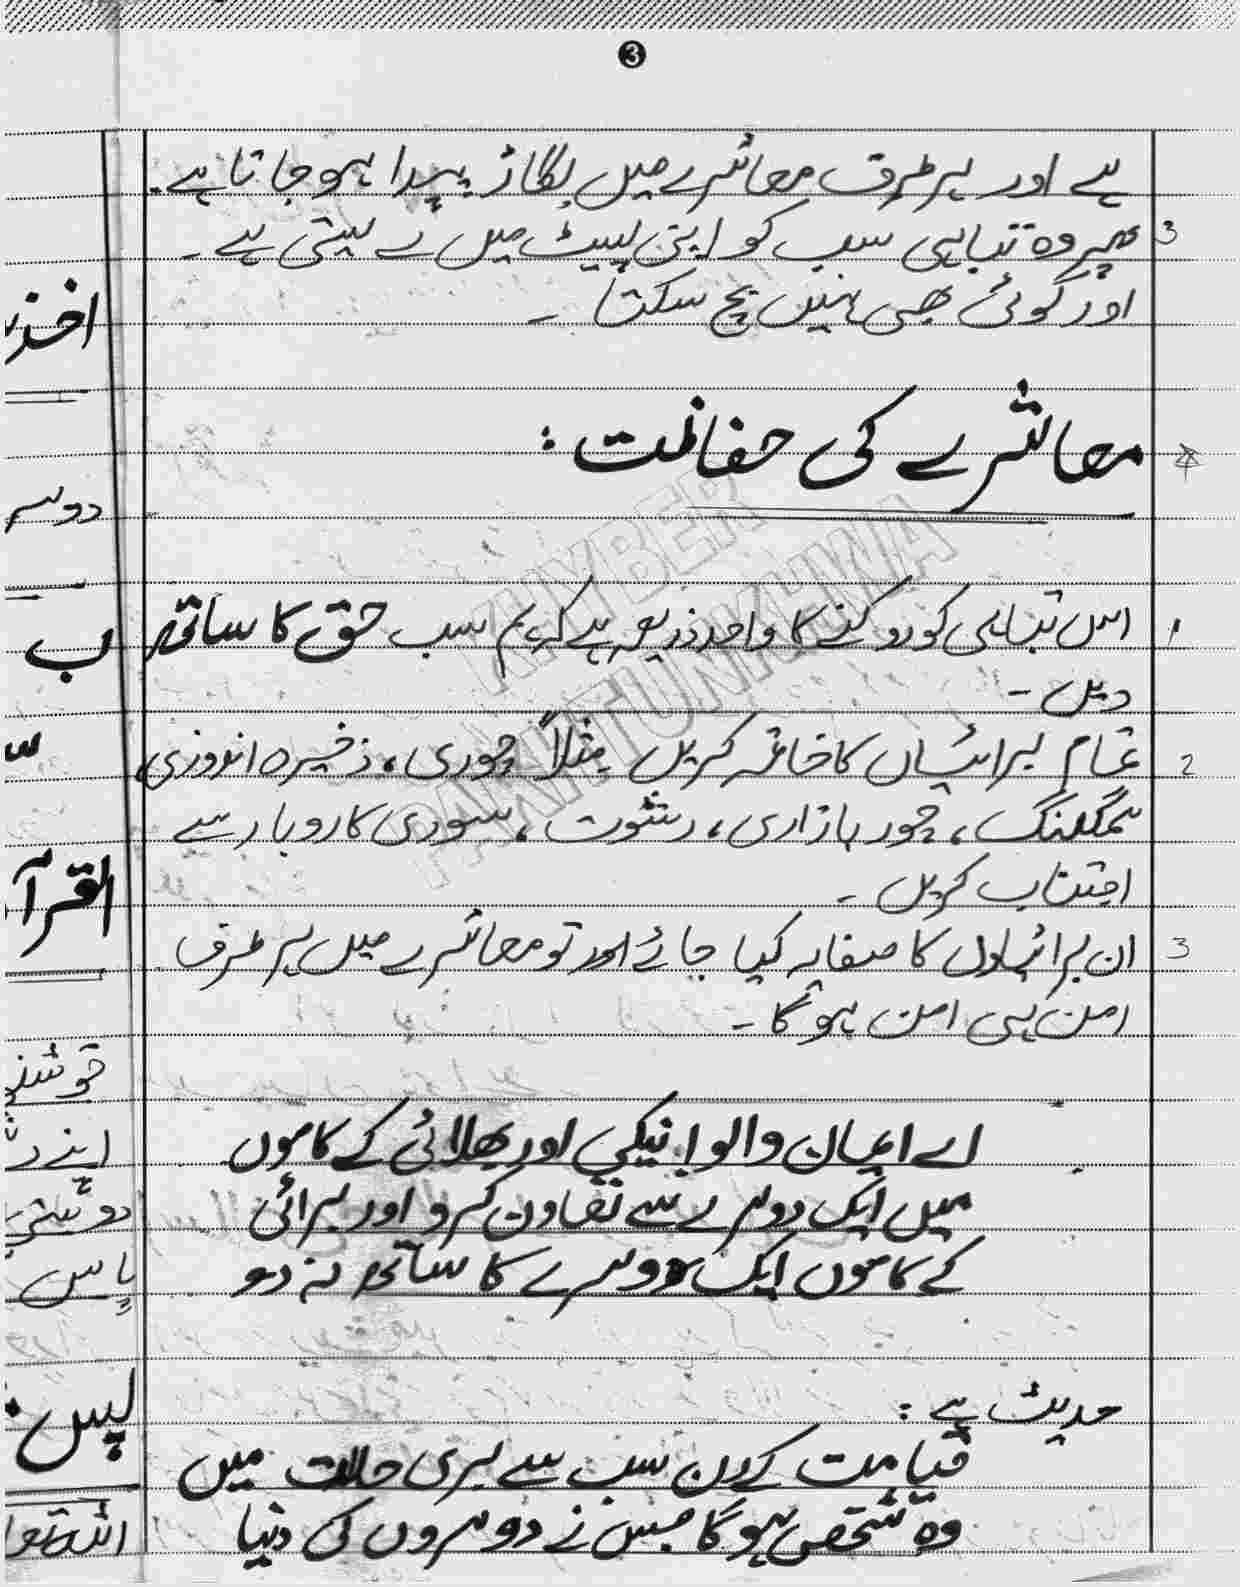 3
ہے اور ہر طرف معاشرے میں بگاڑ پیدا ہو جاتا ہے۔
3 پھر وہ تباہی سب کو اپنی لپیٹ میں لے لیتی ہے۔
اور کوئی بھی نہیں بچ سکتا۔
معاشرے کی حفاظت:
1 اس تباہی کو روکنے کا واحد ذریعہ ہے کہ ہم سب حق کا ساتھ
دیں۔
2 تمام برائیاں کا خاتمہ کریں مثلاً چوری، ذخیرہ اندوزی
سمگلنگ، چور بازاری، رشوت، سودی کاروبار سے
اجتناب کریں۔
3 ان برائیاوں کا صفایہ کیا جائے اور تو معاشرے میں ہر طرف
امن ہی امن ہو گا۔
اے ایمان والو! نیکی اور بھلائی کے کاموں
میں ایک دوسرے سے تعاون کرو اور برائی
کے کاموں ایک دوسرے کا ساتھ نہ دو
حدیث ہے:
قیامت کے دن سب سے بری حالت میں
وہ شخص ہو گا جس نے دوسروں کی دنیا
KHYBER
PAKHTUNKHWA
دوسر
ب
القرآ
اپنے د
دوستی
پاس
پس